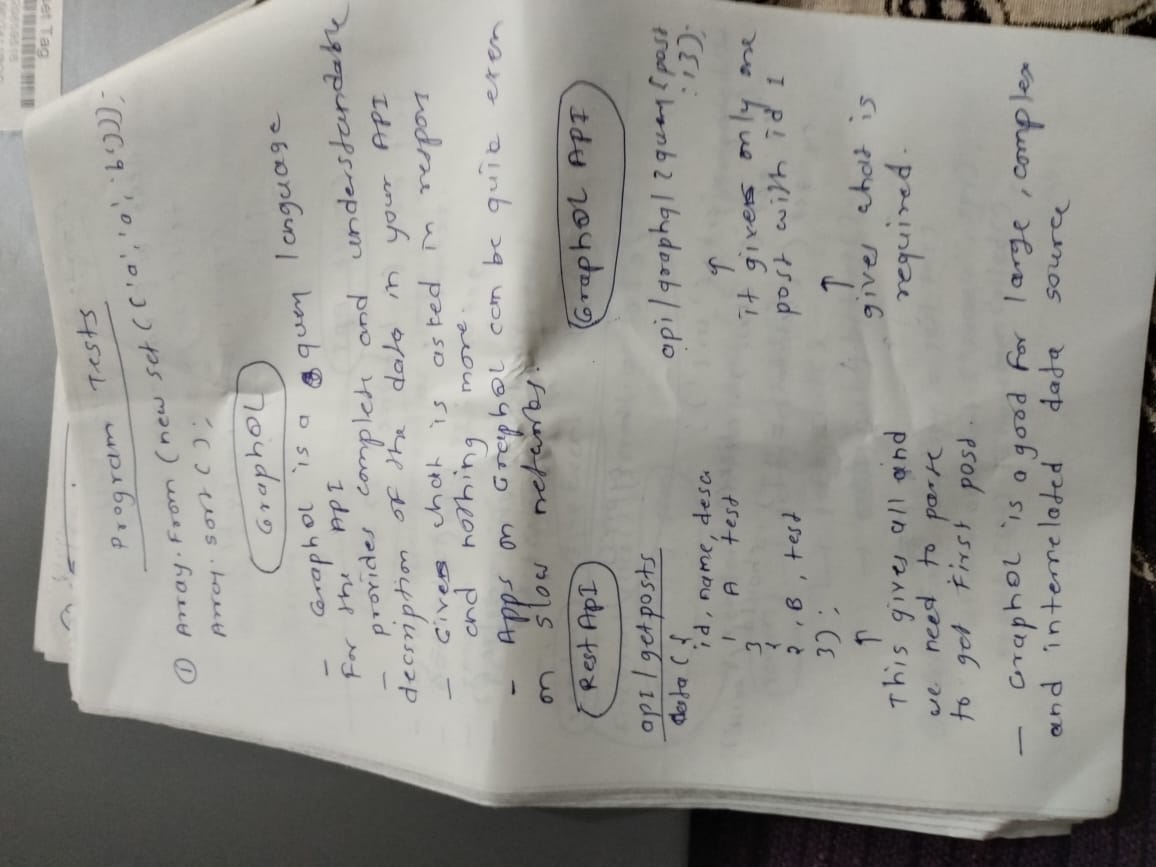 Program Tests
① Array.From (new set(('a','a','b')));
Array.sort();
GraphQL
- GraphQL is a query language
for the API
- provides complete and understandable
description of the data in your API
- Gives what is asked in respons
and nothing more.
- Apps on GraphQL can be quick even
on slow networks.
Rest API
api/getposts
data({
id, name, desc
1 A test
}
{
2, B, test
});
↑
This gives all and
we need to parse
to get first post.
GraphQL API
api/graphql?query{post
:i});
↑
it gives only one
post with id 1
↑
gives what is
required.
- GraphQL is a good for large, complex
and interrelated data source
et Tag